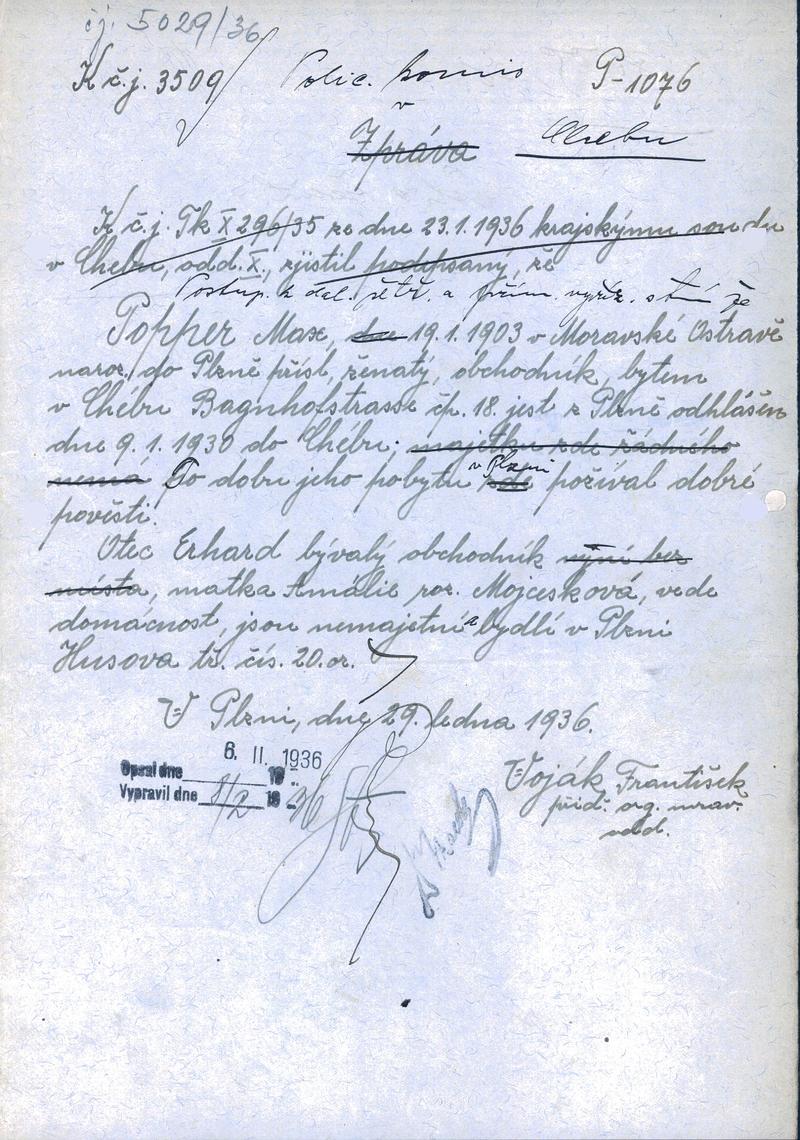 čj. 5029/36
K č.j. 3509 Polic. komis P-1076
v
Zpráva Chebu
K č.j. Tk X 296/35 ze dne 23.1.1936 krajskýmu soudu
v Chebu, odd. X., zjistil podepsaný, že
Postup. k dal. a přím. vyříz. s tím že
Popper Max, dne 19.1.1903 v Moravské Ostravě
naroz. do Plzně přísl, ženatý, obchodník, bytem
v Chébu Bagnhofstrasse čp. 18. jest z Plzně odhlášen
dne 9.1.1930 do Chébu; majetku zde řádného
nemá Po dobu jeho pobytu zde v Plzni požíval dobré
pověsti.
Otec Erhard bývalý obchodník nyní bez
místa, matka Amálie roz. Mojzesková, vede
domácnost, jsou nemajetní a bydlí v Plzni
Husova tř. čís. 20.
V Plzni, dne 29. ledna 1936.
6. II. 1936
Opsal dne 19
Vypravil dne 8/2 19 36
Voják František
přid. org. mrav.
odd.